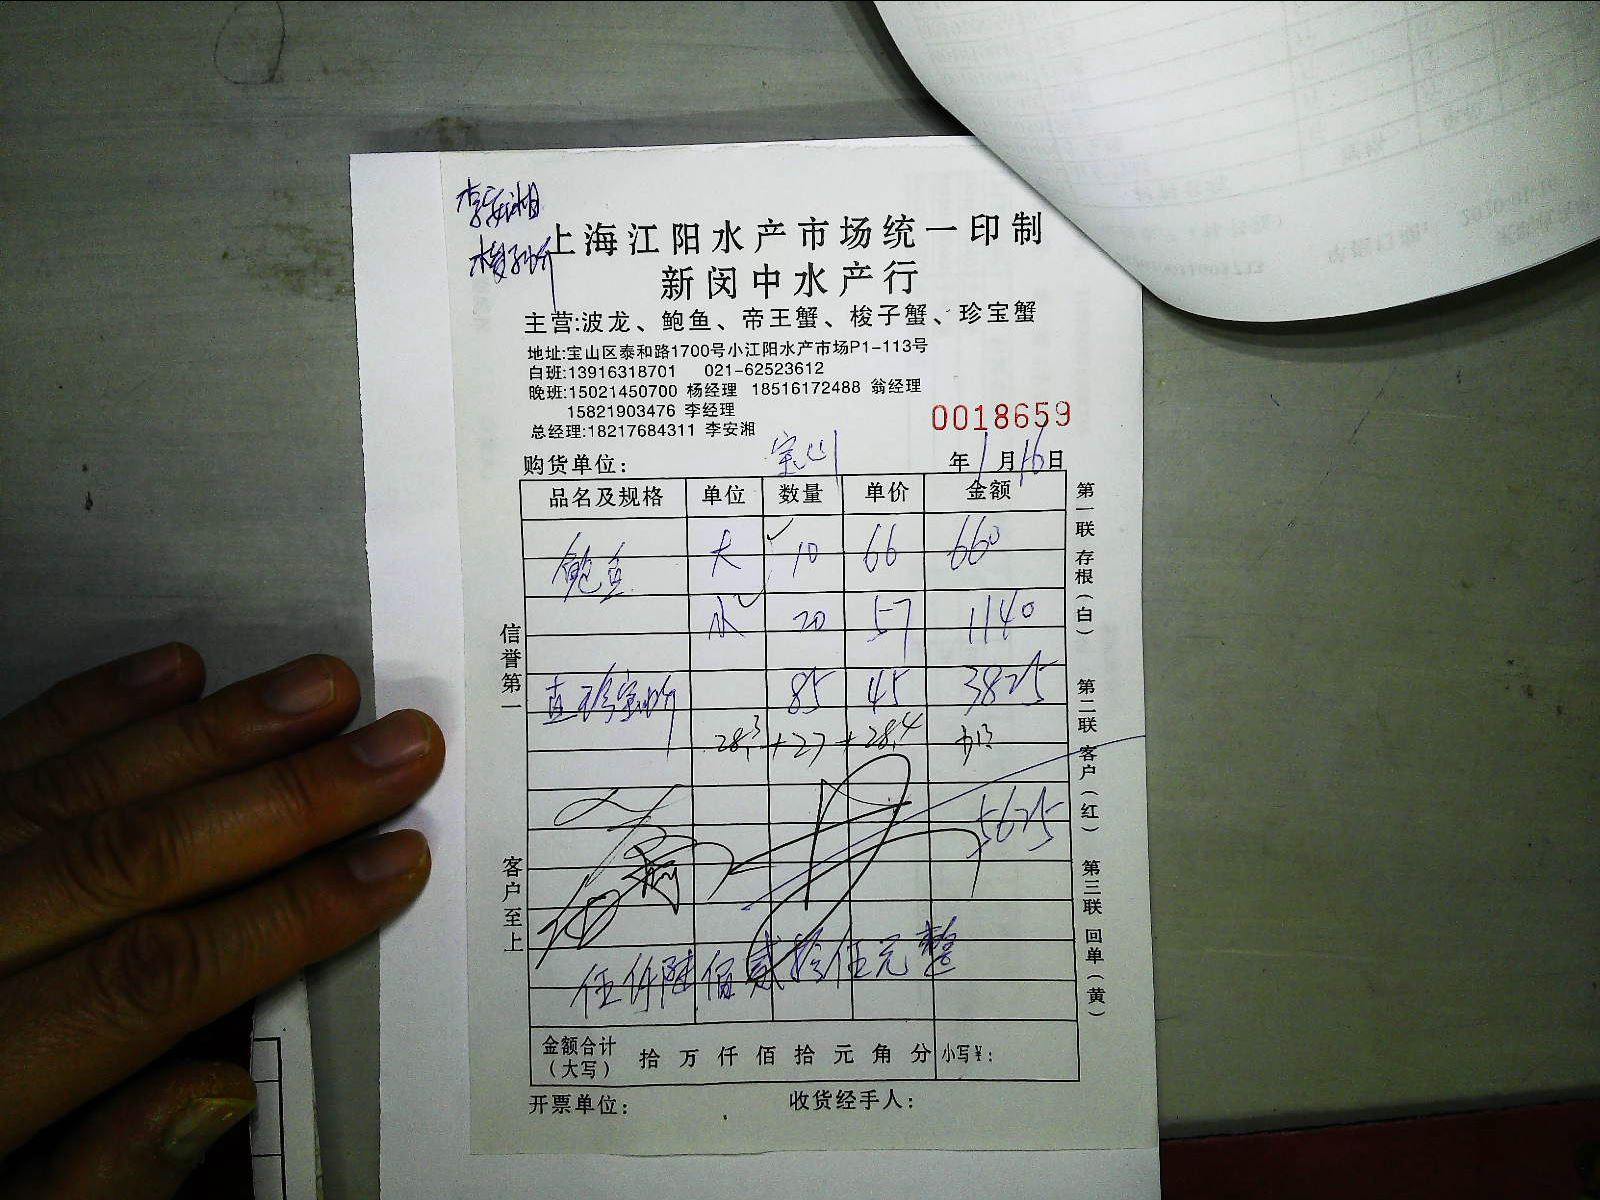 李安湘
梭子蚧
上海江阳水产市场统一印制
新闵中水产行
主营:波龙、鲍鱼、帝王蟹、梭子蟹、珍宝蟹
地址:宝山区泰和路1700号小江阳水产市场P1-113号
白班:13916318701 021-62523612
晚班:15021450700 杨经理 18516172488 翁经理
15821903476 李经理
总经理:18217684311 李安湘
0018659
购货单位: 宝山 年 1 月 16 日
品名及规格 单位 数量 单价 金额
鲍鱼 大 10 66 660
小 20 57 1140
直 珍宝蚧 85 45 3825
28.3 + 27 + 28.4
5625
伍仟陆佰贰拾伍元整
金额合计(大写) 拾 万 仟 佰 拾 元 角 分 小写¥:
开票单位: 收货经手人:
信誉第一
客户至上
第一联 存根(白)
第二联 客户(红)
第三联 回单(黄)